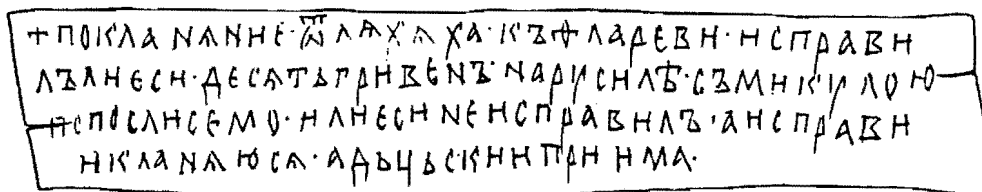 +ПОКЛАНѦНИЕ·Ѿ ЛѦХѦХА·КЪФЛАРЕВИ·ИСПРАВИ
ЛЪЛИЕСИ·ДЕСѦТЬГРИВЕНЪ·НАРУСИЛѢ·СЪМИКУЛОЮ
ПОСЛИСЕМО·ИЛИЕСИНЕИСПРАВИЛЪ·АИСПРАВИ
ИКЛАНѦЮСѦ·АДЬЦЬСКИИПРИИМА·